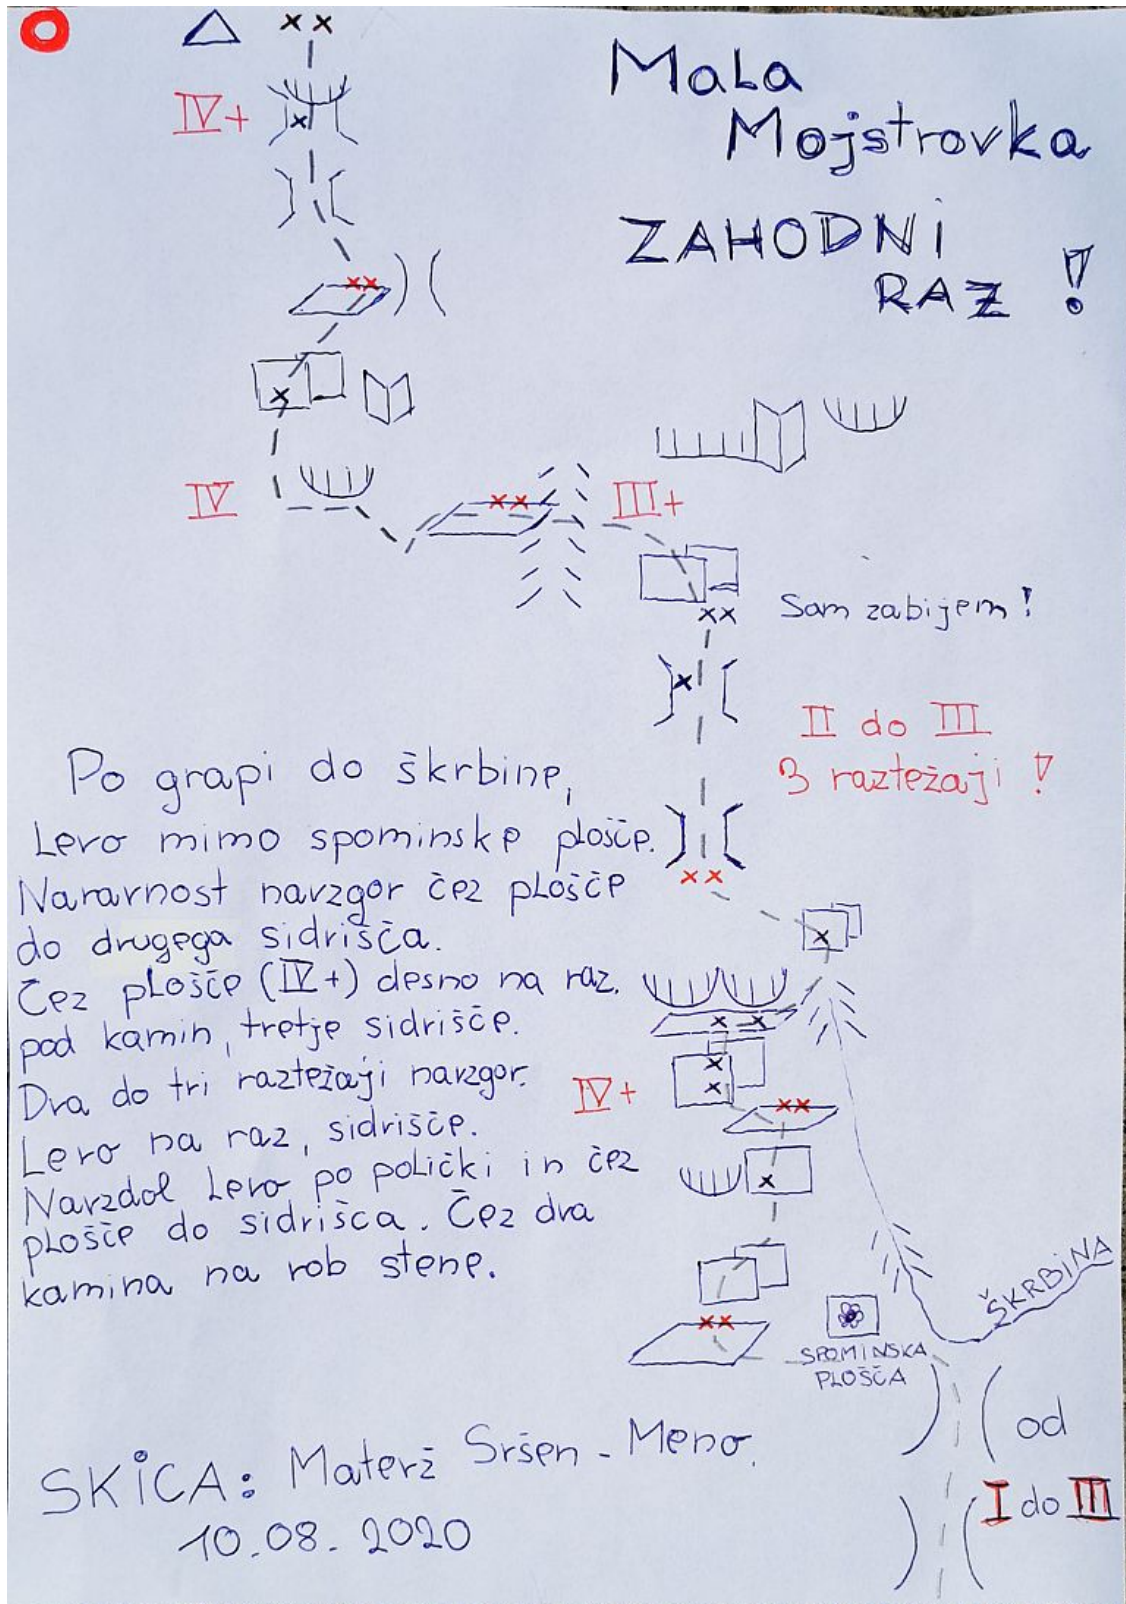 Mala
Mojstrovka
ZAHODNI
RAZ !
IV+
IV
III+
Sam zabijem!
II do III
3 raztežaji !
Po grapi do škrbine,
Levo mimo spominske plošče.
Naravnost navzgor čez plošče
do drugega sidrišča.
Čez plošče (IV+) desno na raz.
pod kamin, tretje sidrišče.
Dva do tri raztežaji navzgor.
Levo na raz, sidrišče.
Navzdol Levo po polički in čez
plošče do sidrišca. Čez dva
kamina na rob stene.
IV+
ŠKRBINA
SPOMINSKA
PLOŠČA
od
I do III
SKICA: Matevž Sršen - Meno.
10.08. 2020